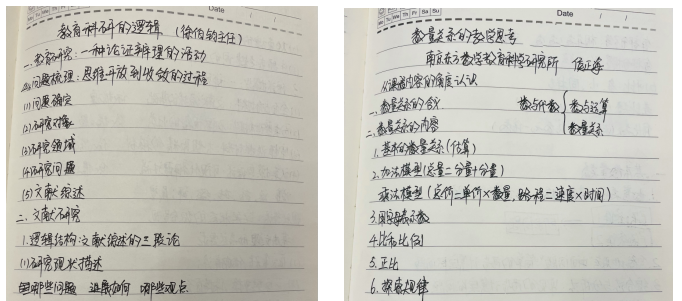 Date
Tu We Th Fr Sa Su
教育科研的逻辑 (徐伯钧主任)
一、教育研究:一种论证辩理的活动
问题梳理:思维开放到收敛的过程
(1)问题确定
(2)研究对象
(3)研究领域
(4)研究问题
(5)文献综述
二、文献研究
1.逻辑结构:文献综述的三段论
(1)研究现状描述
哪些问题 进展如何 哪些观点
Mo Tu We Th Fr Sa Su
Date
数量关系的教学思考
南京东方数学教育科学研究所 侯正海
从课程内容的角度认识
一、数量关系的含义 数与代数 { 数与运算
数量关系
二、数量关系的内容
1.基本的数量关系(估算)
2.加法模型(总量=分量+分量)
乘法模型(总价=单价×数量,路程=速度×时间)
3.用字母表示数
4.比和比例
5.正比
6.探索规律